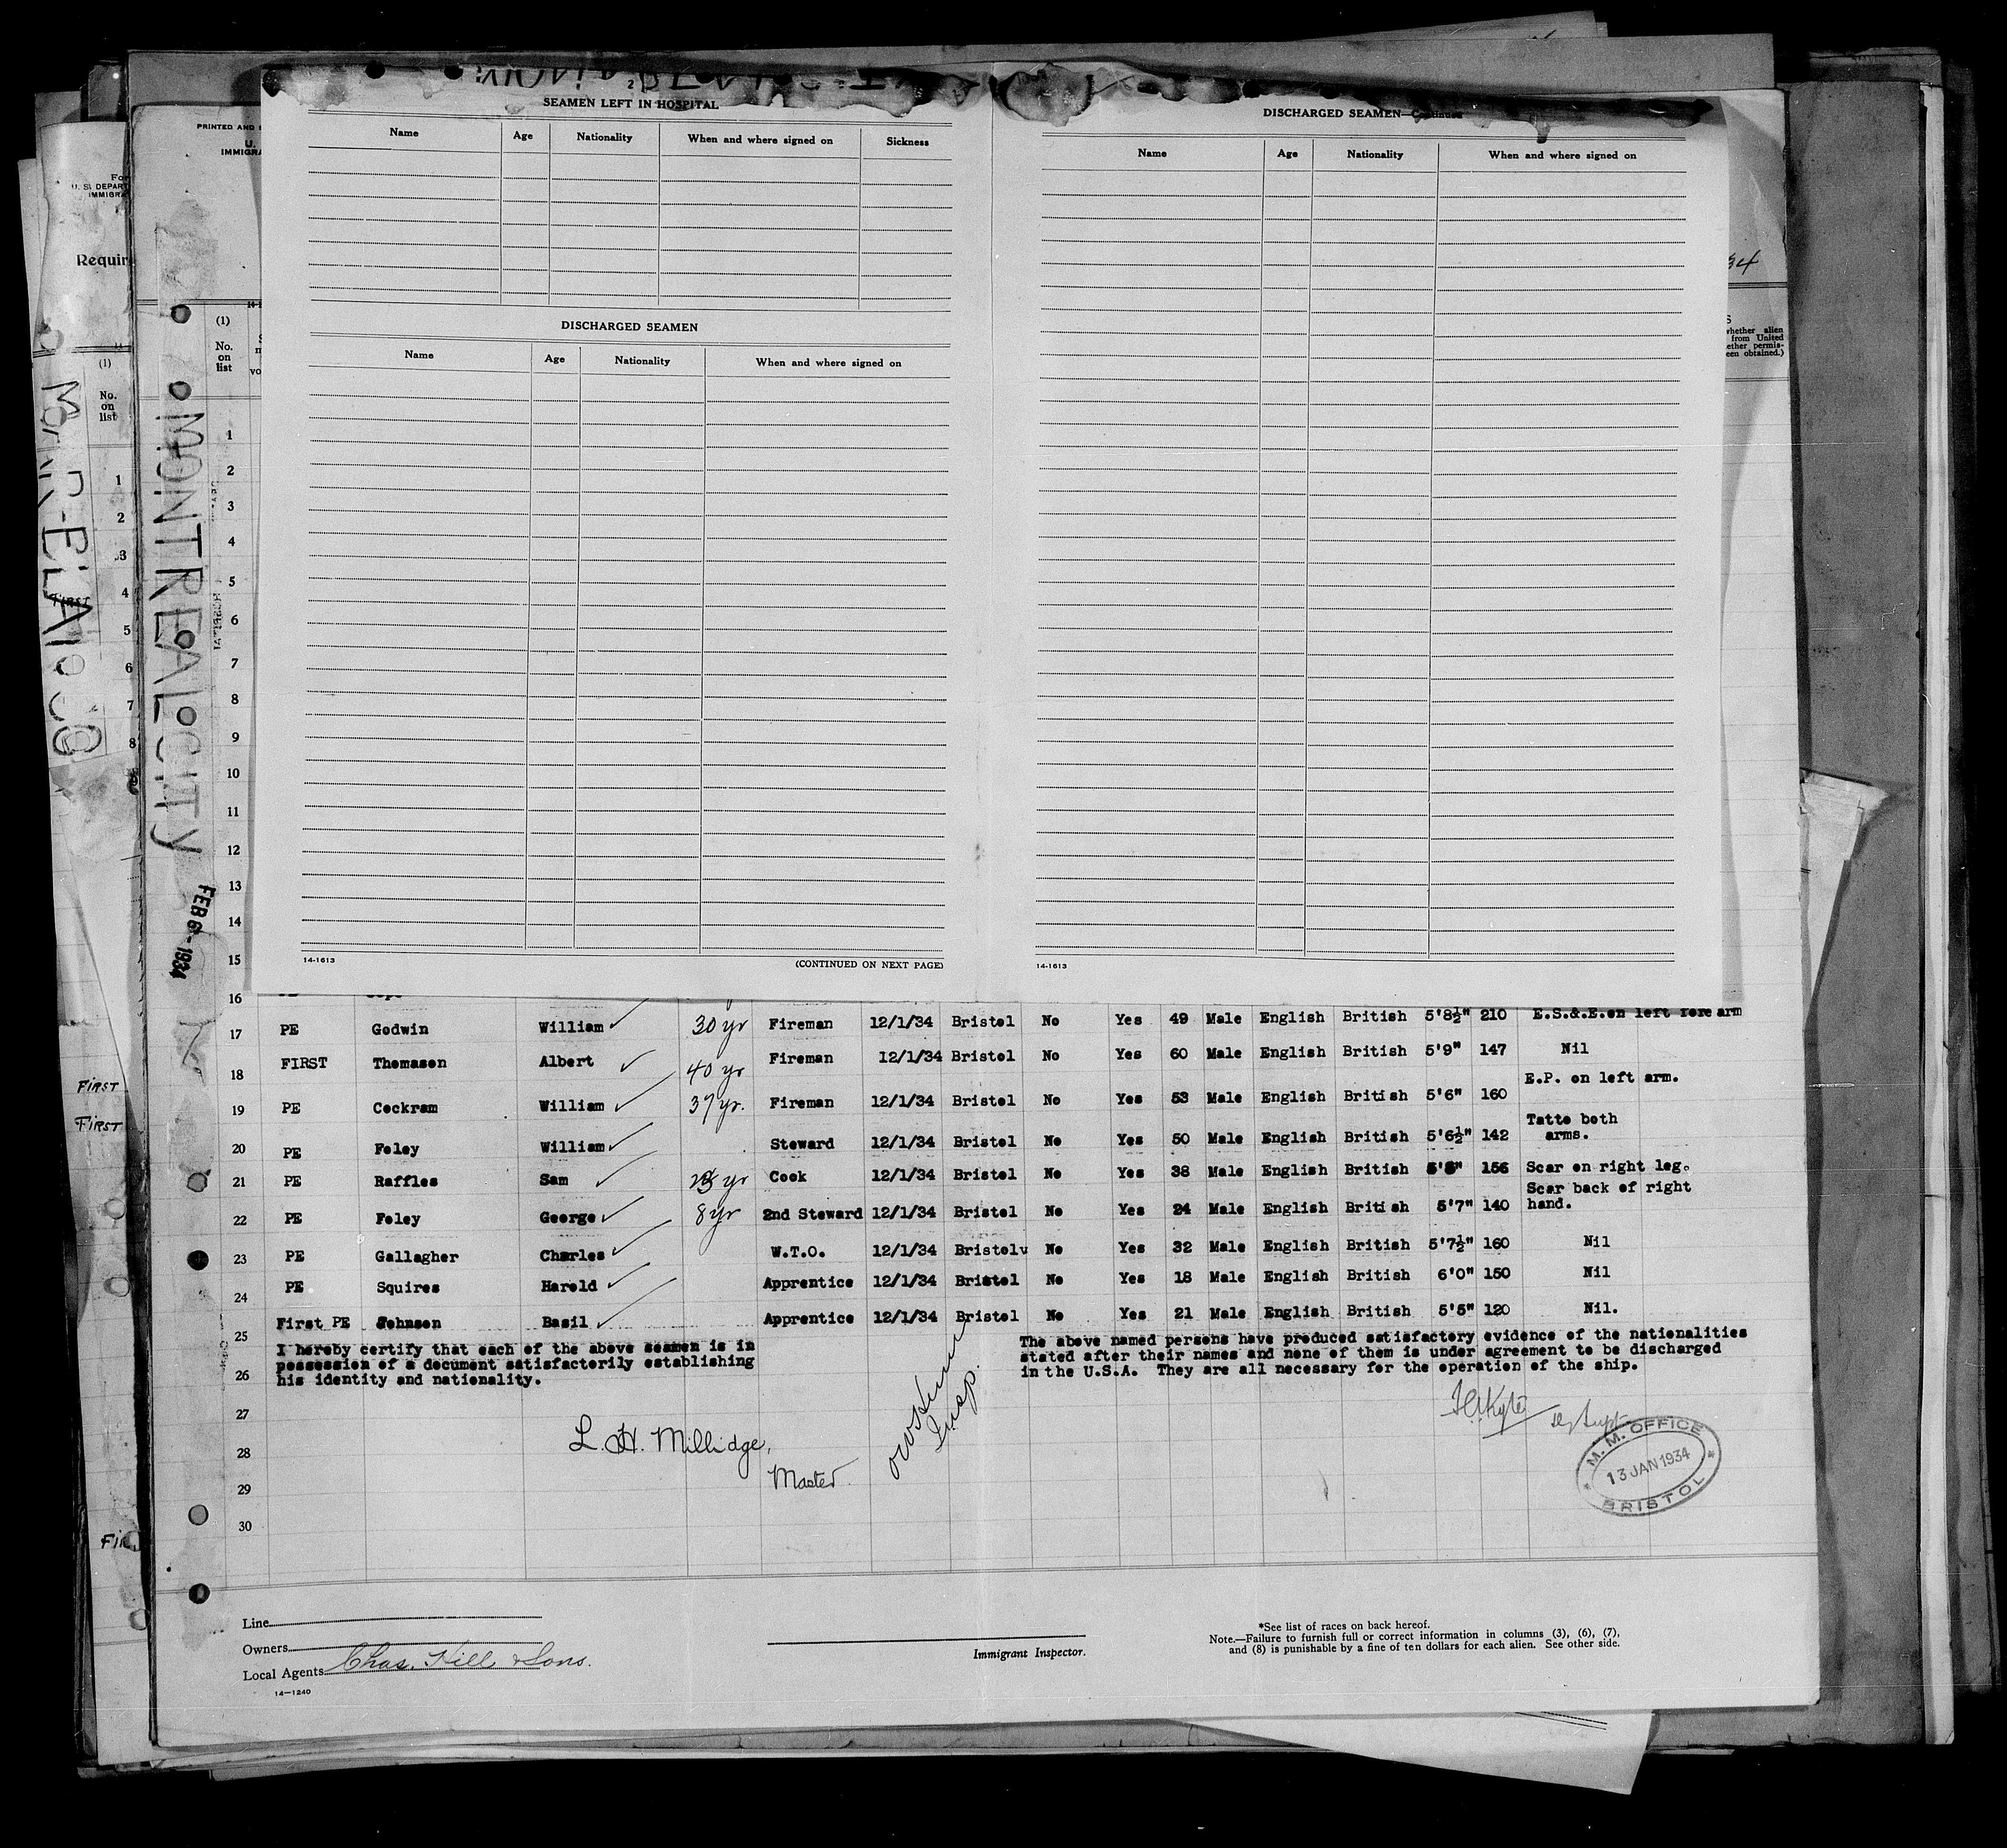 SEAMEN LEFT IN HOSPITAL
Name Age Nationality When and where signed on Sickness
DISCHARGED SEAMEN
Name Age Nationality When and where signed on
14-1613 (CONTINUED ON NEXT PAGE)
DISCHARGED SEAMEN—Continued
Name Age Nationality When and where signed on
14-1613
PRINTED AND
U.
IMMIGRA
For
U. S. DEPART
IMMIGRA
Requir
(1)
No.
on
list
1
2
3
4
5
6
7
8
First
First
First
MONTREAL CITY
FEB 6 - 1934
34
whether alien
from United
ether permis-
een obtained.)
(1)
No.
on
list
1
2
3
4
5
6
7
8
9
10
11
12
13
14
15
16
17 PE Godwin William 30 yr Fireman 12/1/34 Bristol No Yes 49 Male English British 5'8½" 210 E.S.&.E.on left fore arm
18 FIRST Thomason Albert 40 yr Fireman 12/1/34 Bristol No Yes 60 Male English British 5'9" 147 Nil
19 PE Cockram William 37 yr. Fireman 12/1/34 Bristol No Yes 53 Male English British 5'6" 160 E.P. on left arm.
20 PE Foley William Steward 12/1/34 Bristol No Yes 50 Male English British 5'6½" 142 Tatto both arms.
21 PE Raffles Sam yr Cook 12/1/34 Bristol No Yes 38 Male English British 156 Scar on right leg.
22 PE Foley George 8 yr 2nd Steward 12/1/34 Bristol No Yes 24 Male English British 5'7" 140 Scar back of right hand.
23 PE Gallagher Charles W.T.O. 12/1/34 Bristolv No Yes 32 Male English British 5'7½" 160 Nil
24 PE Squires Harold Apprentice 12/1/34 Bristol No Yes 18 Male English British 6'0" 150 Nil
First PE Johnson Basil Apprentice 12/1/34 Bristol No Yes 21 Male English British 5'5" 120 Nil.
25
26
27
28
29
30
I hereby certify that each of the above seamen is in
possession of a document satisfactorily establishing
his identity and nationality.
L. H. Millidge,
Master
Insp.
The above named persons have produced satisfactory evidence of the nationalities
stated after their names and none of them is under agreement to be discharged
in the U.S.A. They are all necessary for the operation of the ship.
M. M. OFFICE
13 JAN 1934
BRISTOL
Line
Owners
Local Agents Chas. Hill & Sons.
14-1240
Immigrant Inspector.
*See list of races on back hereof.
Note.—Failure to furnish full or correct information in columns (3), (6), (7),
and (8) is punishable by a fine of ten dollars for each alien. See other side.